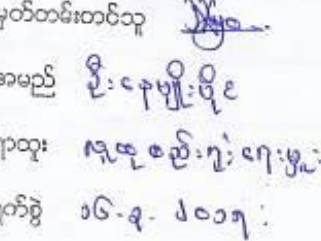 မှတ်တမ်းတင်သူ
အမည် ဦးနေမျိုးပိုင်
ရာထူး လူထုစည်းရုံးရေးမှူး
ရက်စွဲ ၁၆-၃-၂၀၁၇